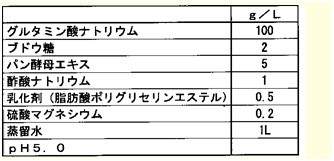 g／L
グルタミン酸ナトリウム 100
ブドウ糖 2
パン酵母エキス 5
酢酸ナトリウム 1
乳化剤（脂肪酸ポリグリセリンエステル） 0.5
硫酸マグネシウム 0.2
蒸留水 1L
ｐＨ５．０